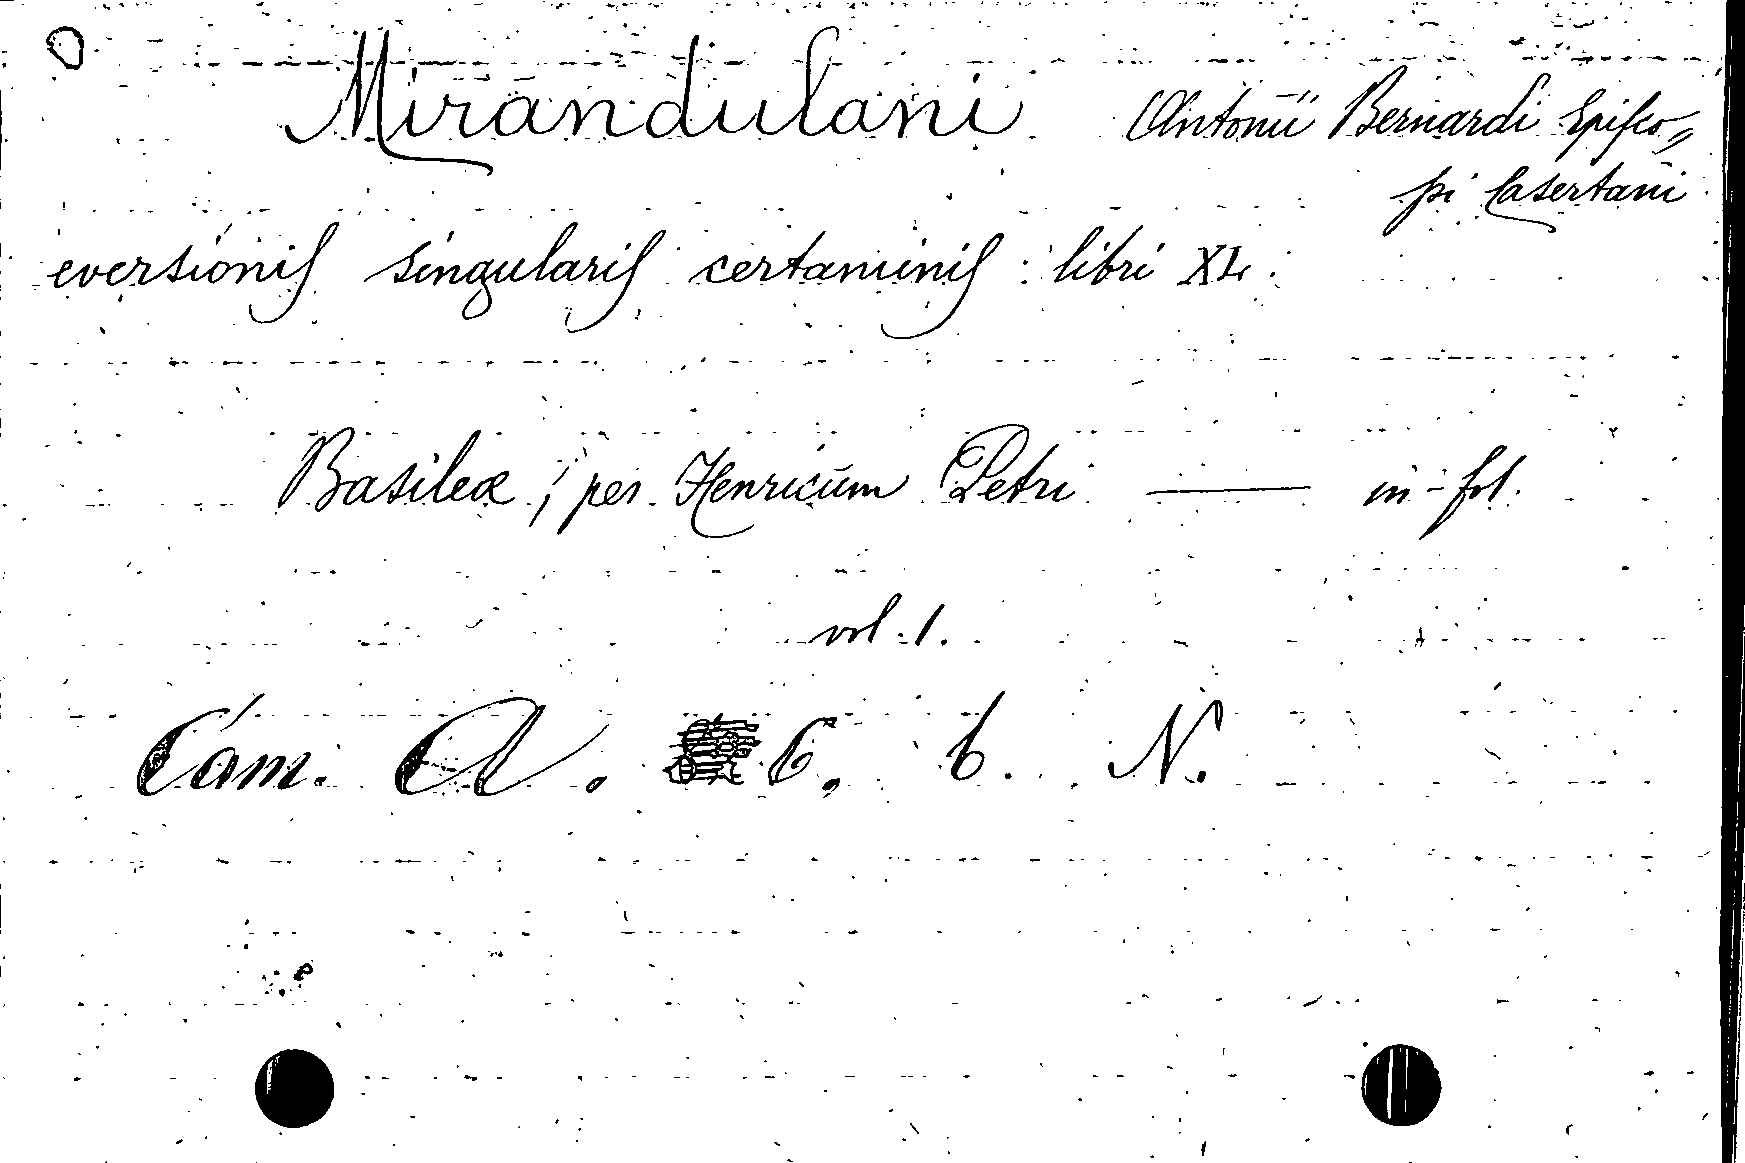 Mirandulani Antonii Bernardi Episco=
pi Casertani
eversionis singularis certaminis: libri XL.
Basileæ, per Henricum Petri — in-fol.
vol. 1.
Cam. A. C. b. N.